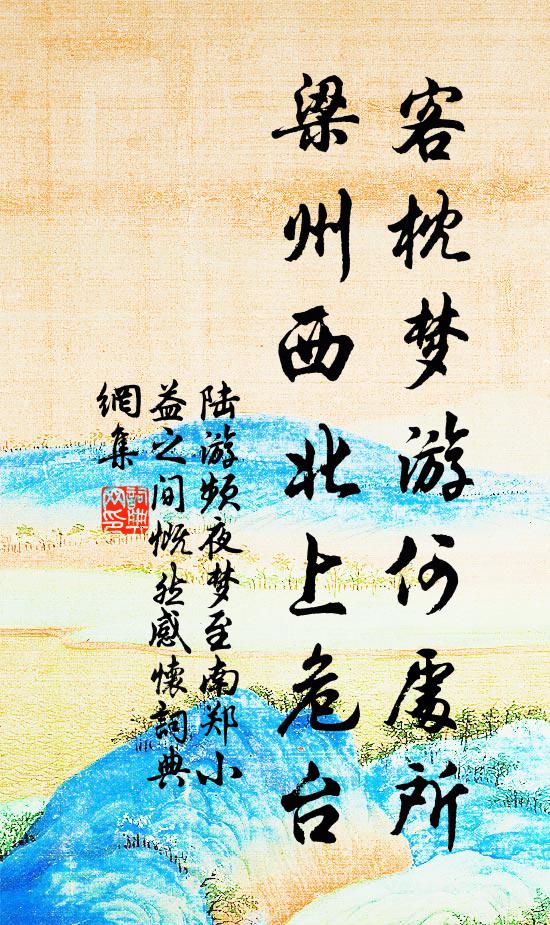 客枕梦游何处所
梁州西北上危台
陆游频夜梦至南郑小
益之间慨然感怀詞典
網集
詞典網印